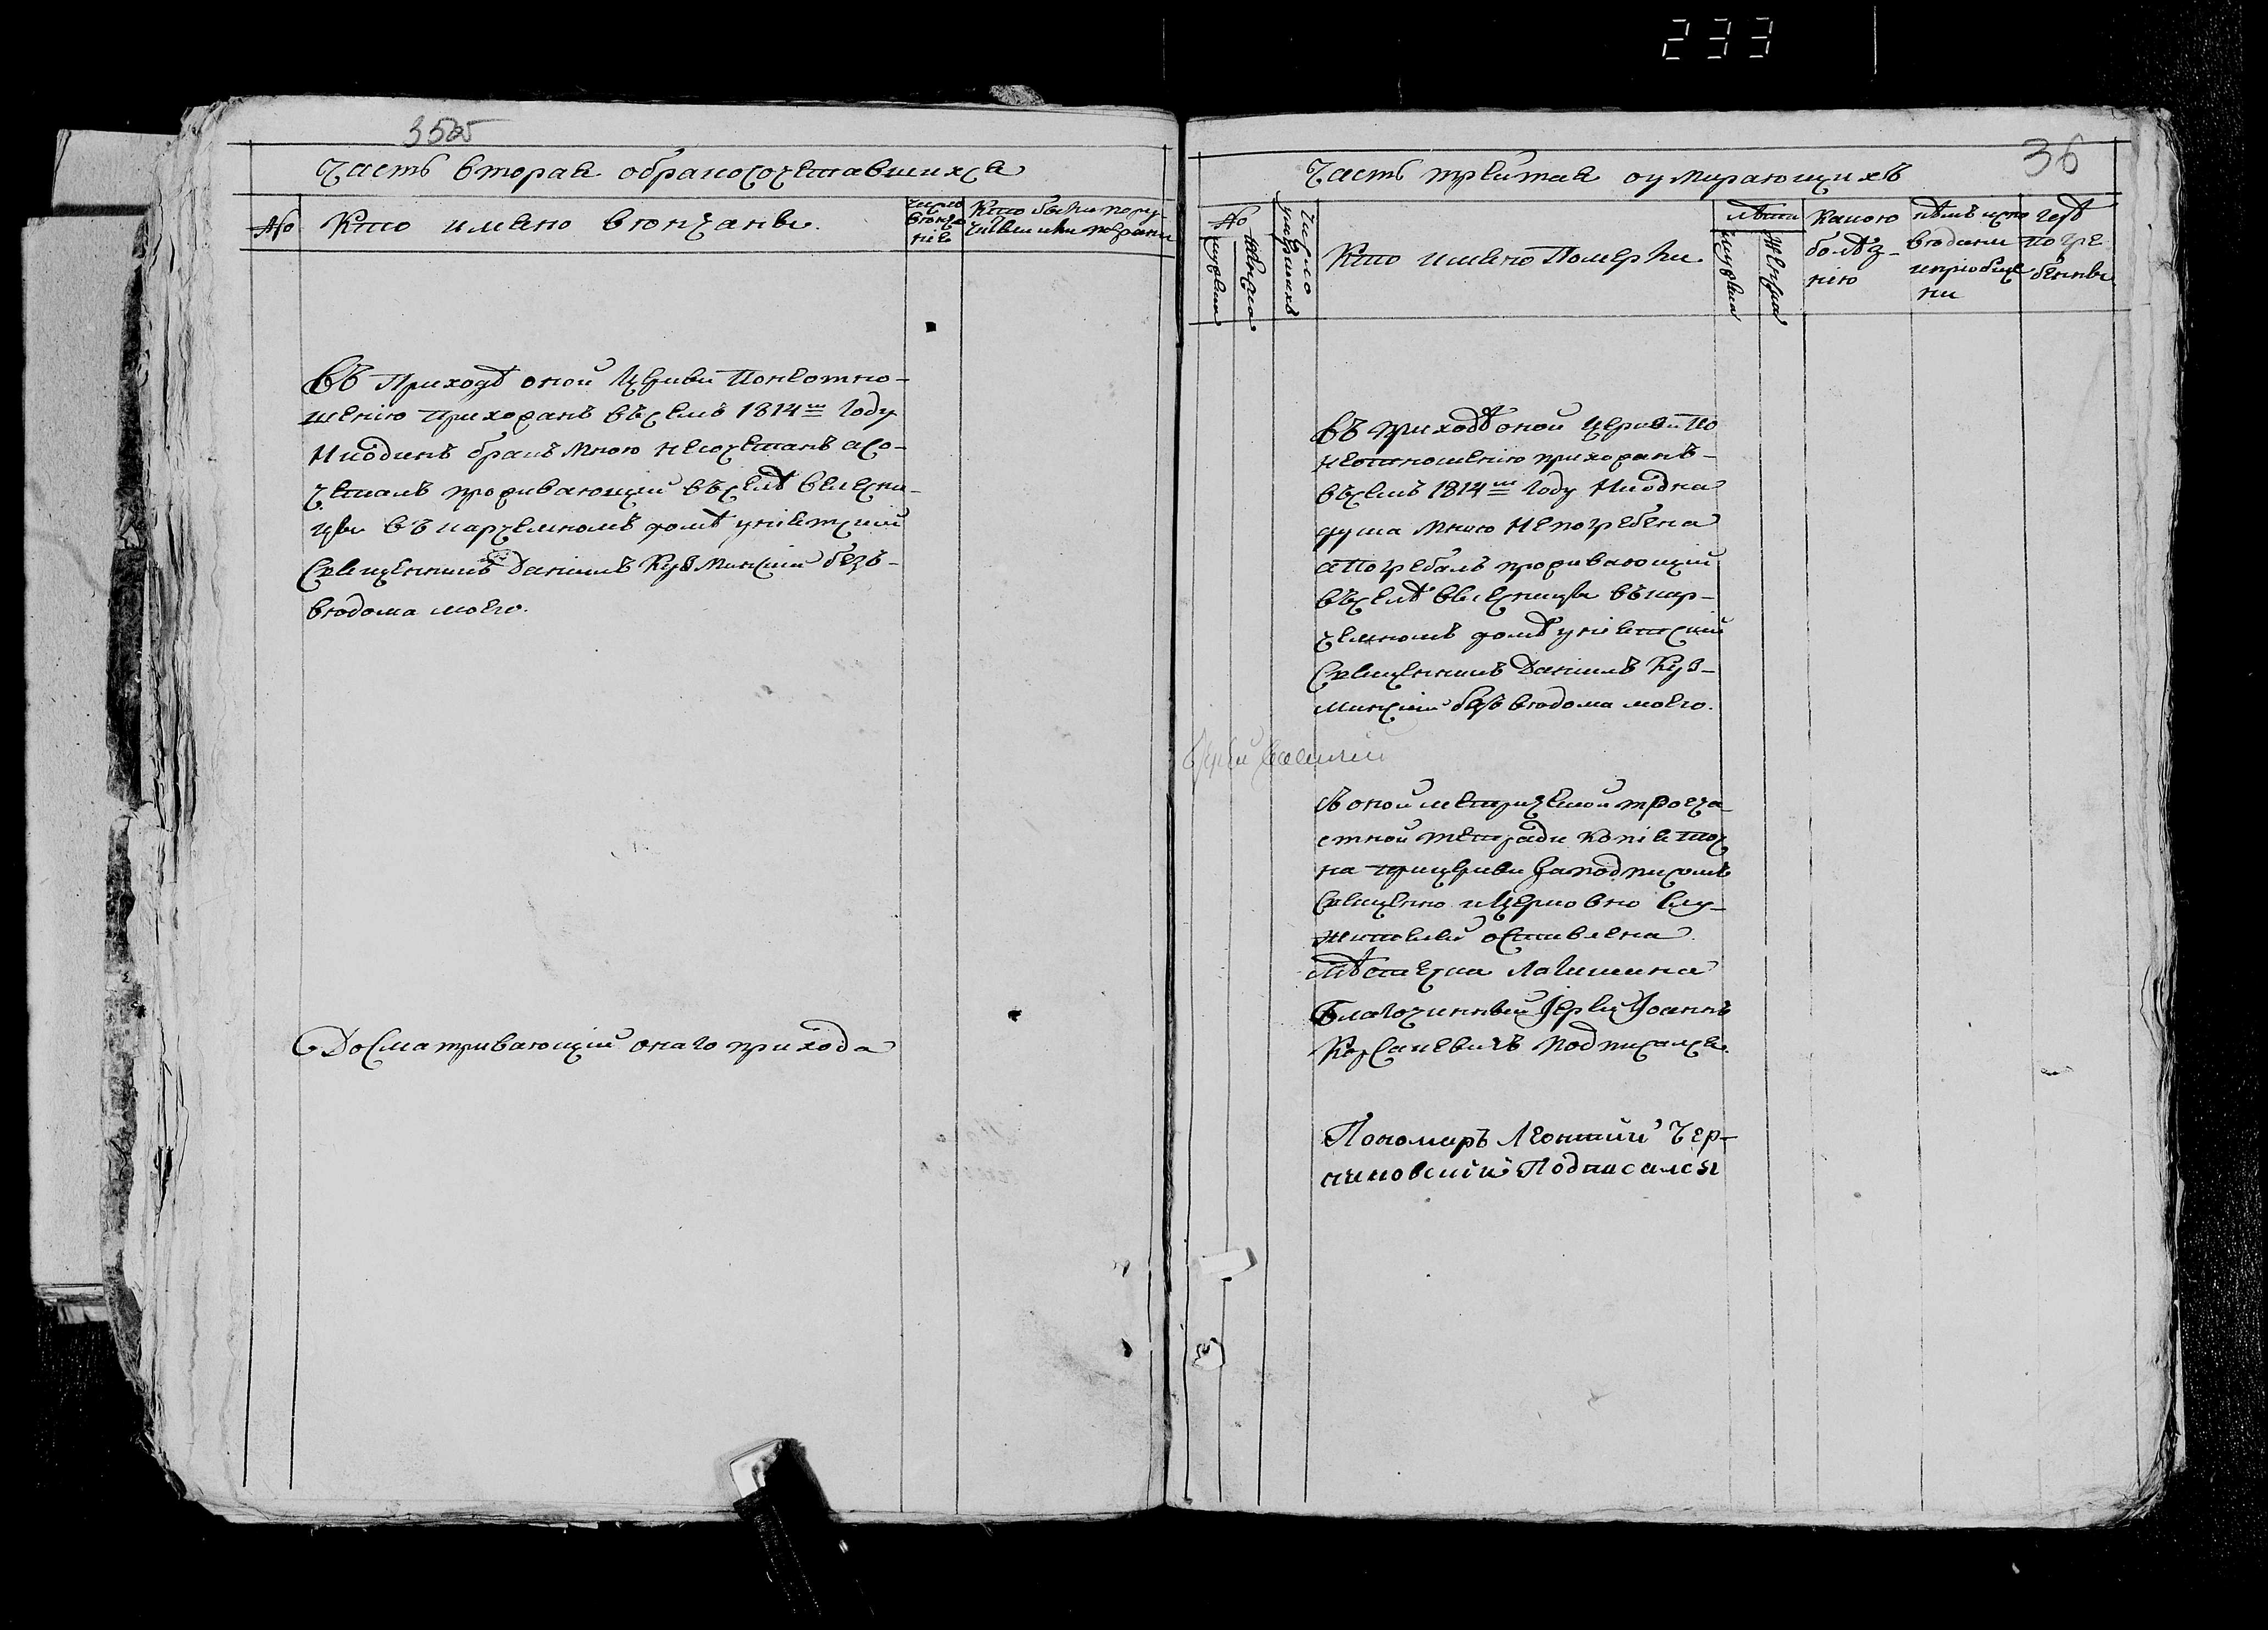 233
35об
Часть вторая обракосочетавшихся
No
Кто имяно вѣнчаны.
Число
вѣнча
нія
Кто были пору
чившики
Въ Приходѣ оной Церкви Понеотно-
шенію Прихожанъ въсемъ 1814м Году
Ниодинъ бракъ мною несочетанъ асо-
четалъ проживающій въселѣ
въ
домѣ уніятский
Священникъ Даниилъ Кузминский безъ-
вѣдома моего.
Досматривающій онаго прихода
36
Часть третая оумирающихъ
No
мужеска
женска
Число
умершихъ
Кто имяно Померли
лѣта
мужеска
женска
Какою
болѣз-
нію
кѣмъ испо
вѣдани
ипріобще
ни
гдѣ
погре
бенны
въ приходѣ оной Церкви По
неотношенію прихожанъ-
въсемъ 1814м Году Ниодна
душа мною Непогребена
аПогребалъ проживающій
въселѣ
домѣ уніятский
Священникъ Даниилъ Куз-
минский безъ вѣдома моего.
оной метрической троеча
стной тетради копія точ
на прицеркви Заподписомъ
Священно иЦерковно Слу-
жителей оставлена
Мѣстечка
Благочинный Іерей Иоаннъ
подписался.
Пономаръ Леонтий Чер-
Подписался